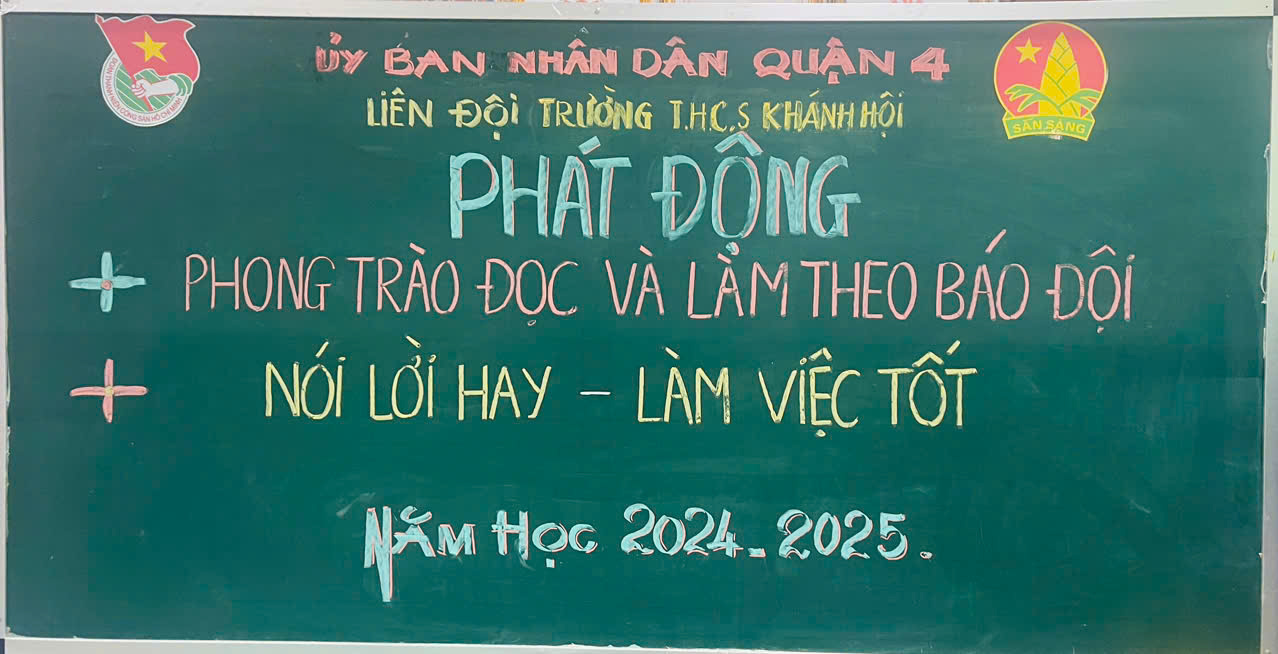 ỦY BAN NHÂN DÂN QUẬN 4
LIÊN ĐỘI TRƯỜNG T.H.C.S KHÁNH HỘI
PHÁT ĐỘNG
+ PHONG TRÀO ĐỌC VÀ LÀM THEO BÁO ĐỘI
+ NÓI LỜI HAY – LÀM VIỆC TỐT
NĂM HỌC 2024-2025.
ĐOÀN THANH NIÊN CỘNG SẢN HỒ CHÍ MINH
SẴN SÀNG